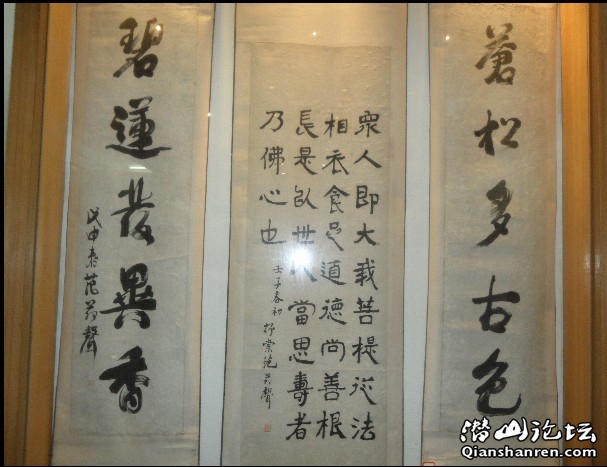 蒼松多古色
衆人即大我菩提從法
相衣食足道德尚善根
長是以世 當思壽者
乃佛心也
壬子春初 范 聲
碧蓮發異香
戊申春范 聲
潜山论坛
Qianshanren.com